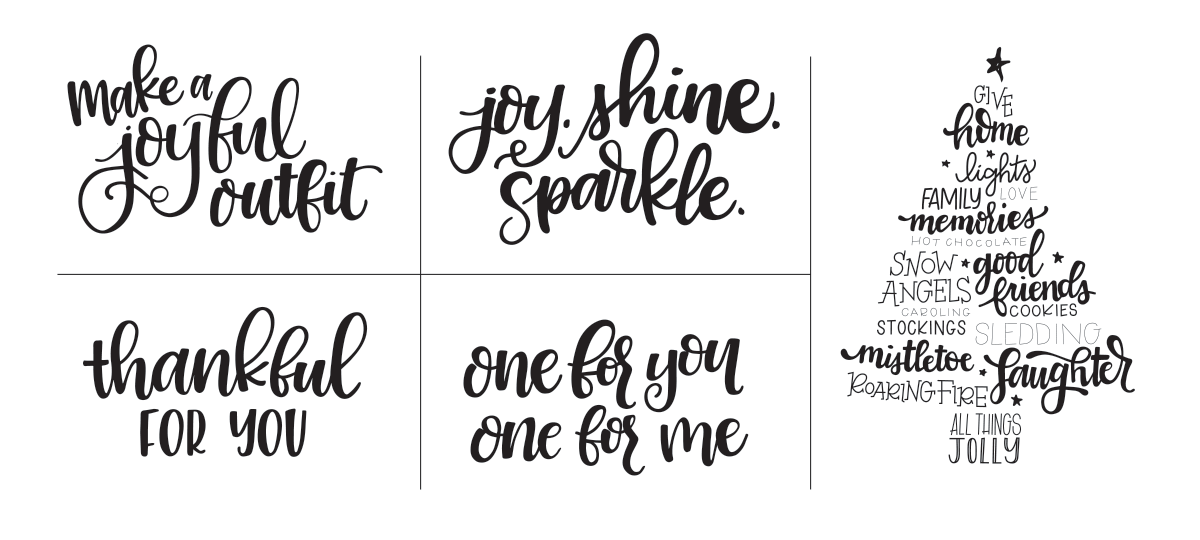 make a
joyful
outfit
joy. shine.
sparkle.
thankful
FOR YOU
one for you
one for me
GIVE
home
lights
FAMILY LOVE
memories
HOT CHOCOLATE
SNOW good
ANGELS friends
CAROLING COOKIES
STOCKINGS SLEDDING
mistletoe laughter
ROARING FIRE
ALL THINGS
JOLLY